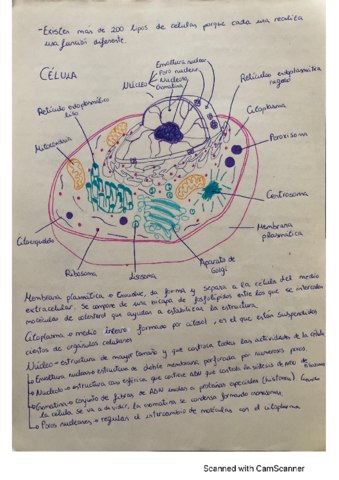 -Existen mas de 200 tipos de celulas porque cada una realiza
una función diferente.
CÉLULA
Núcleo
Envoltura nuclear
Poro nuclear
Nucleolo
Cromatina
Retículo endoplasmático
rugoso
Retículo endoplasmático
liso
Citoplasma
Mitocondria
Peroxisoma
Centrosoma
Membrana
plasmática
Citoesqueleto
Ribosoma
Lisosoma
Aparato de
Golgi
Membrana plasmática → Envuelve, da forma y separa a la célula del medio
extracelular. Se compone de una bicapa de fosfolípidos entre los que se intercalan
moléculas de colesterol que ayudan a estabilizar la estructura.
Citoplasma → medio interno formado por citosol, en el que están suspendidos
cientos de orgánulos celulares
Núcleo → estructura de mayor tamaño y que controla todas las actividades de la célula
Envoltura nuclear → estructura de doble membrana perforada por numerosos poros.
Nucleolo → estructura esférica que contiene ADN que controla la síntesis de
Cromatina → conjunto de fibras de ADN unidas a proteínas especiales (histonas) Cuando
la célula se va a dividir, la cromatina se condensa formando cromosomas.
Poros nucleares → regulan el intercambio de moléculas con el citoplasma
Scanned with CamScanner